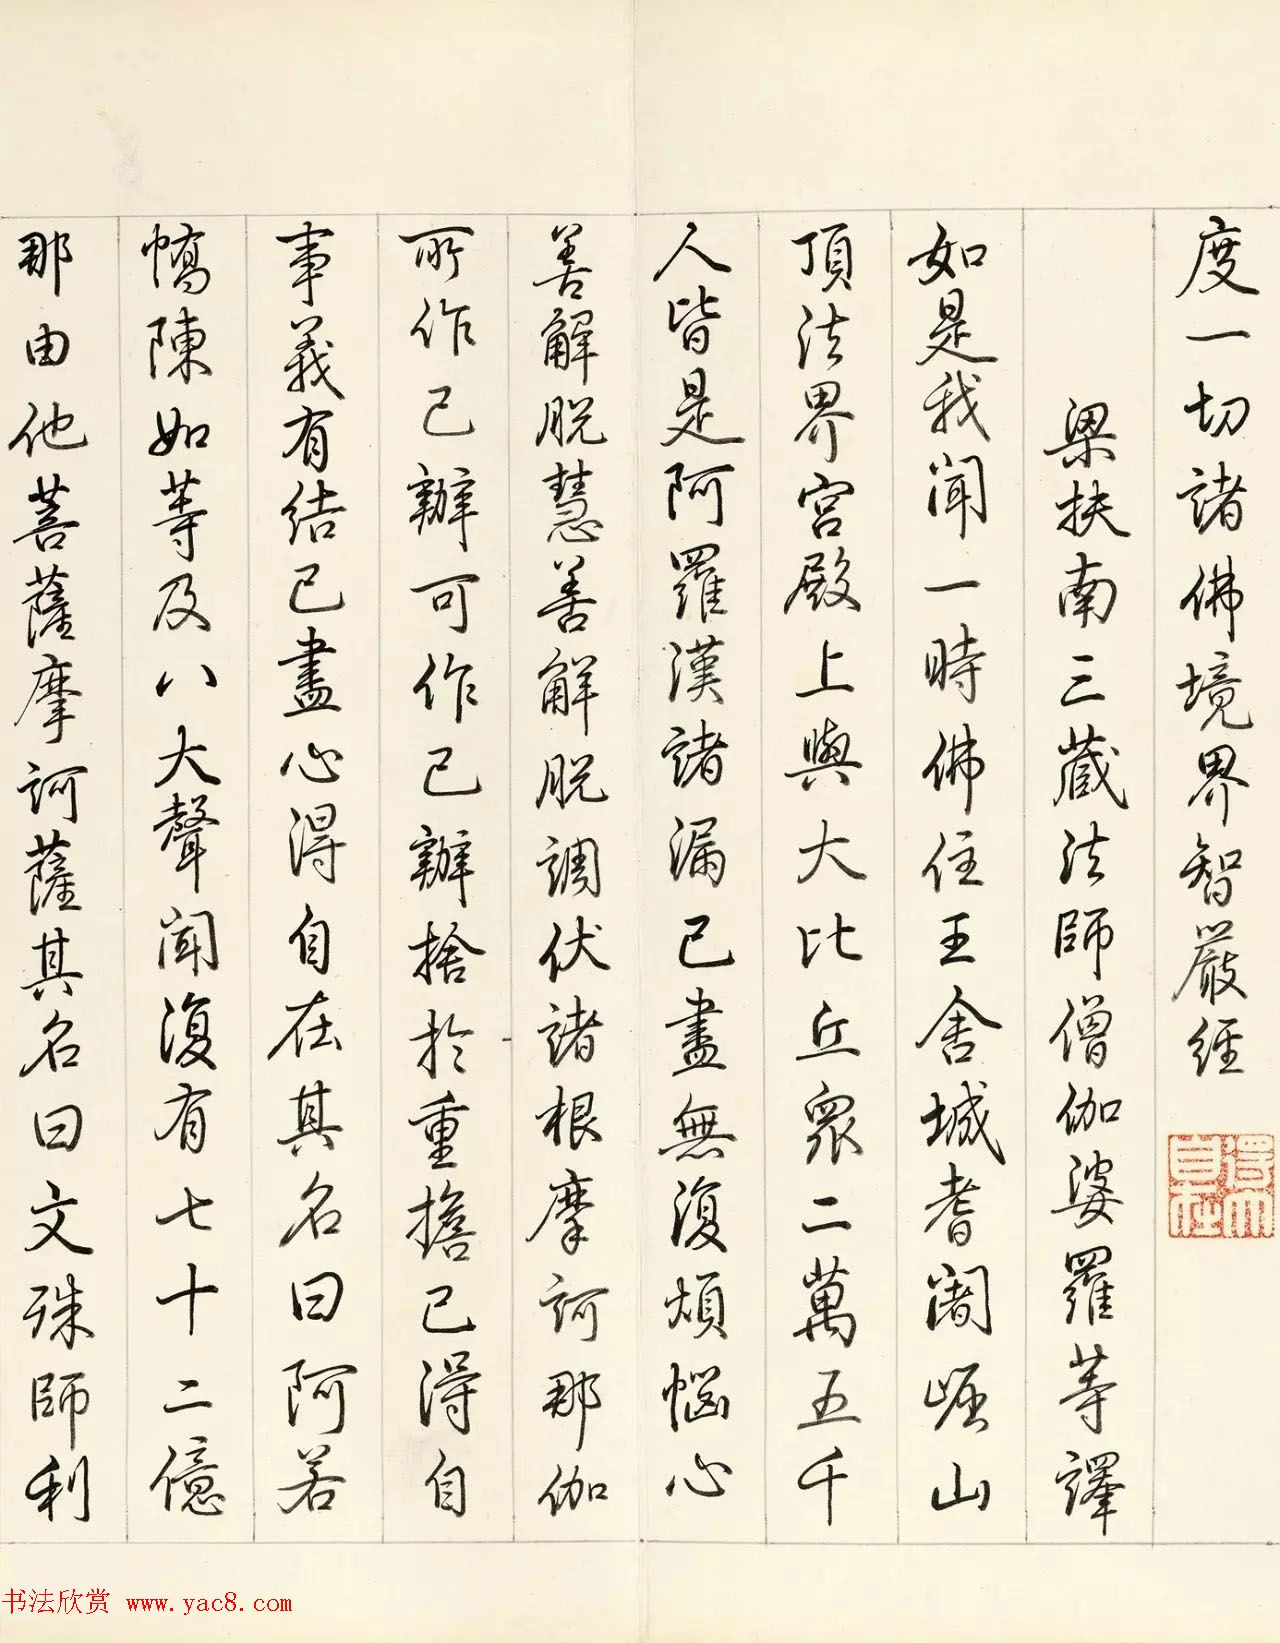 度一切諸佛境界智嚴經
得大自在
梁扶南三藏法師僧伽婆羅等譯
如是我聞一時佛住王舍城耆闍崛山
頂法界宮殿上與大比丘眾二萬五千
人皆是阿羅漢諸漏已盡無復煩惱心
善解脫慧善解脫調伏諸根摩訶那伽
所作已辦可作已辦捨於重擔已得自
事義有結已盡心得自在其名曰阿若
憍陳如等及八大聲聞復有七十二億
那由他菩薩摩訶薩其名曰文殊師利
书法欣赏 www.yac8.com